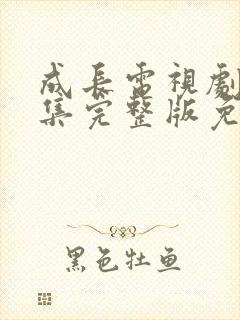 成長電視劇
集完整版免
黑色牡鱼